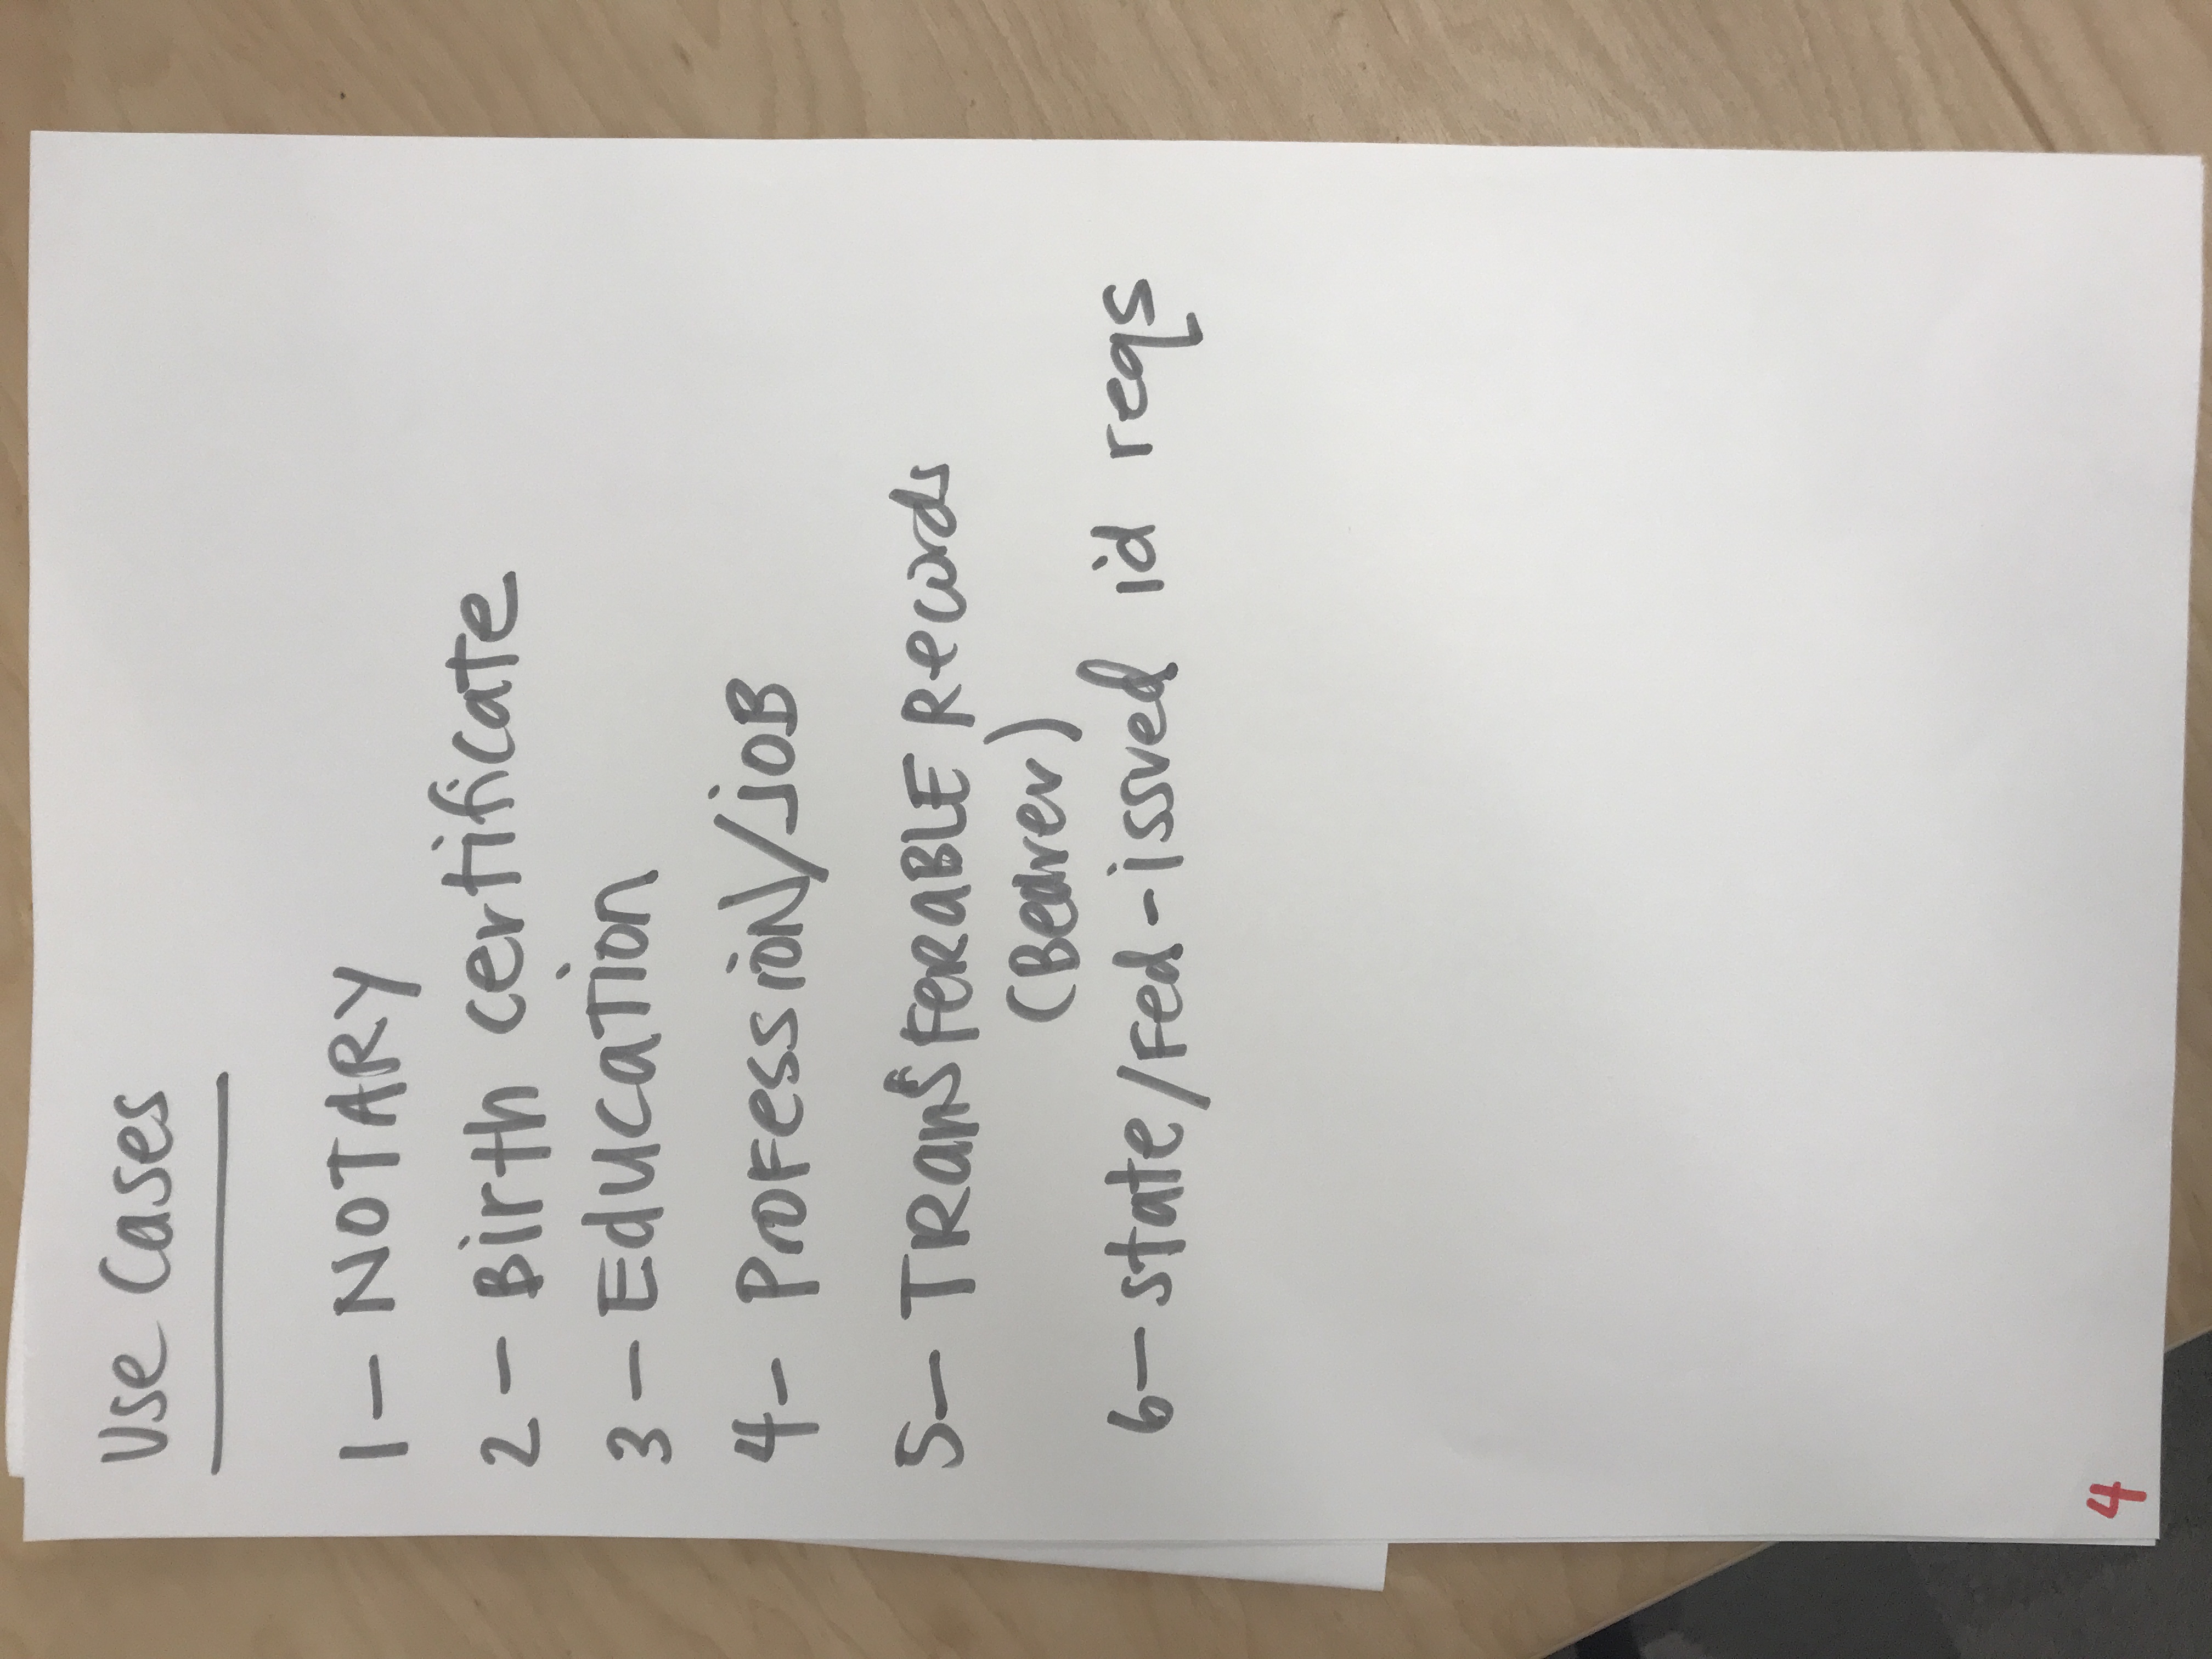 Use Cases
1 - NOTARY
2 - Birth certificate
3 - Education
4 - Profession/job
5 - TRansFERABLE Records
(Bearer)
6 - state/Fed-issued id reqs
4